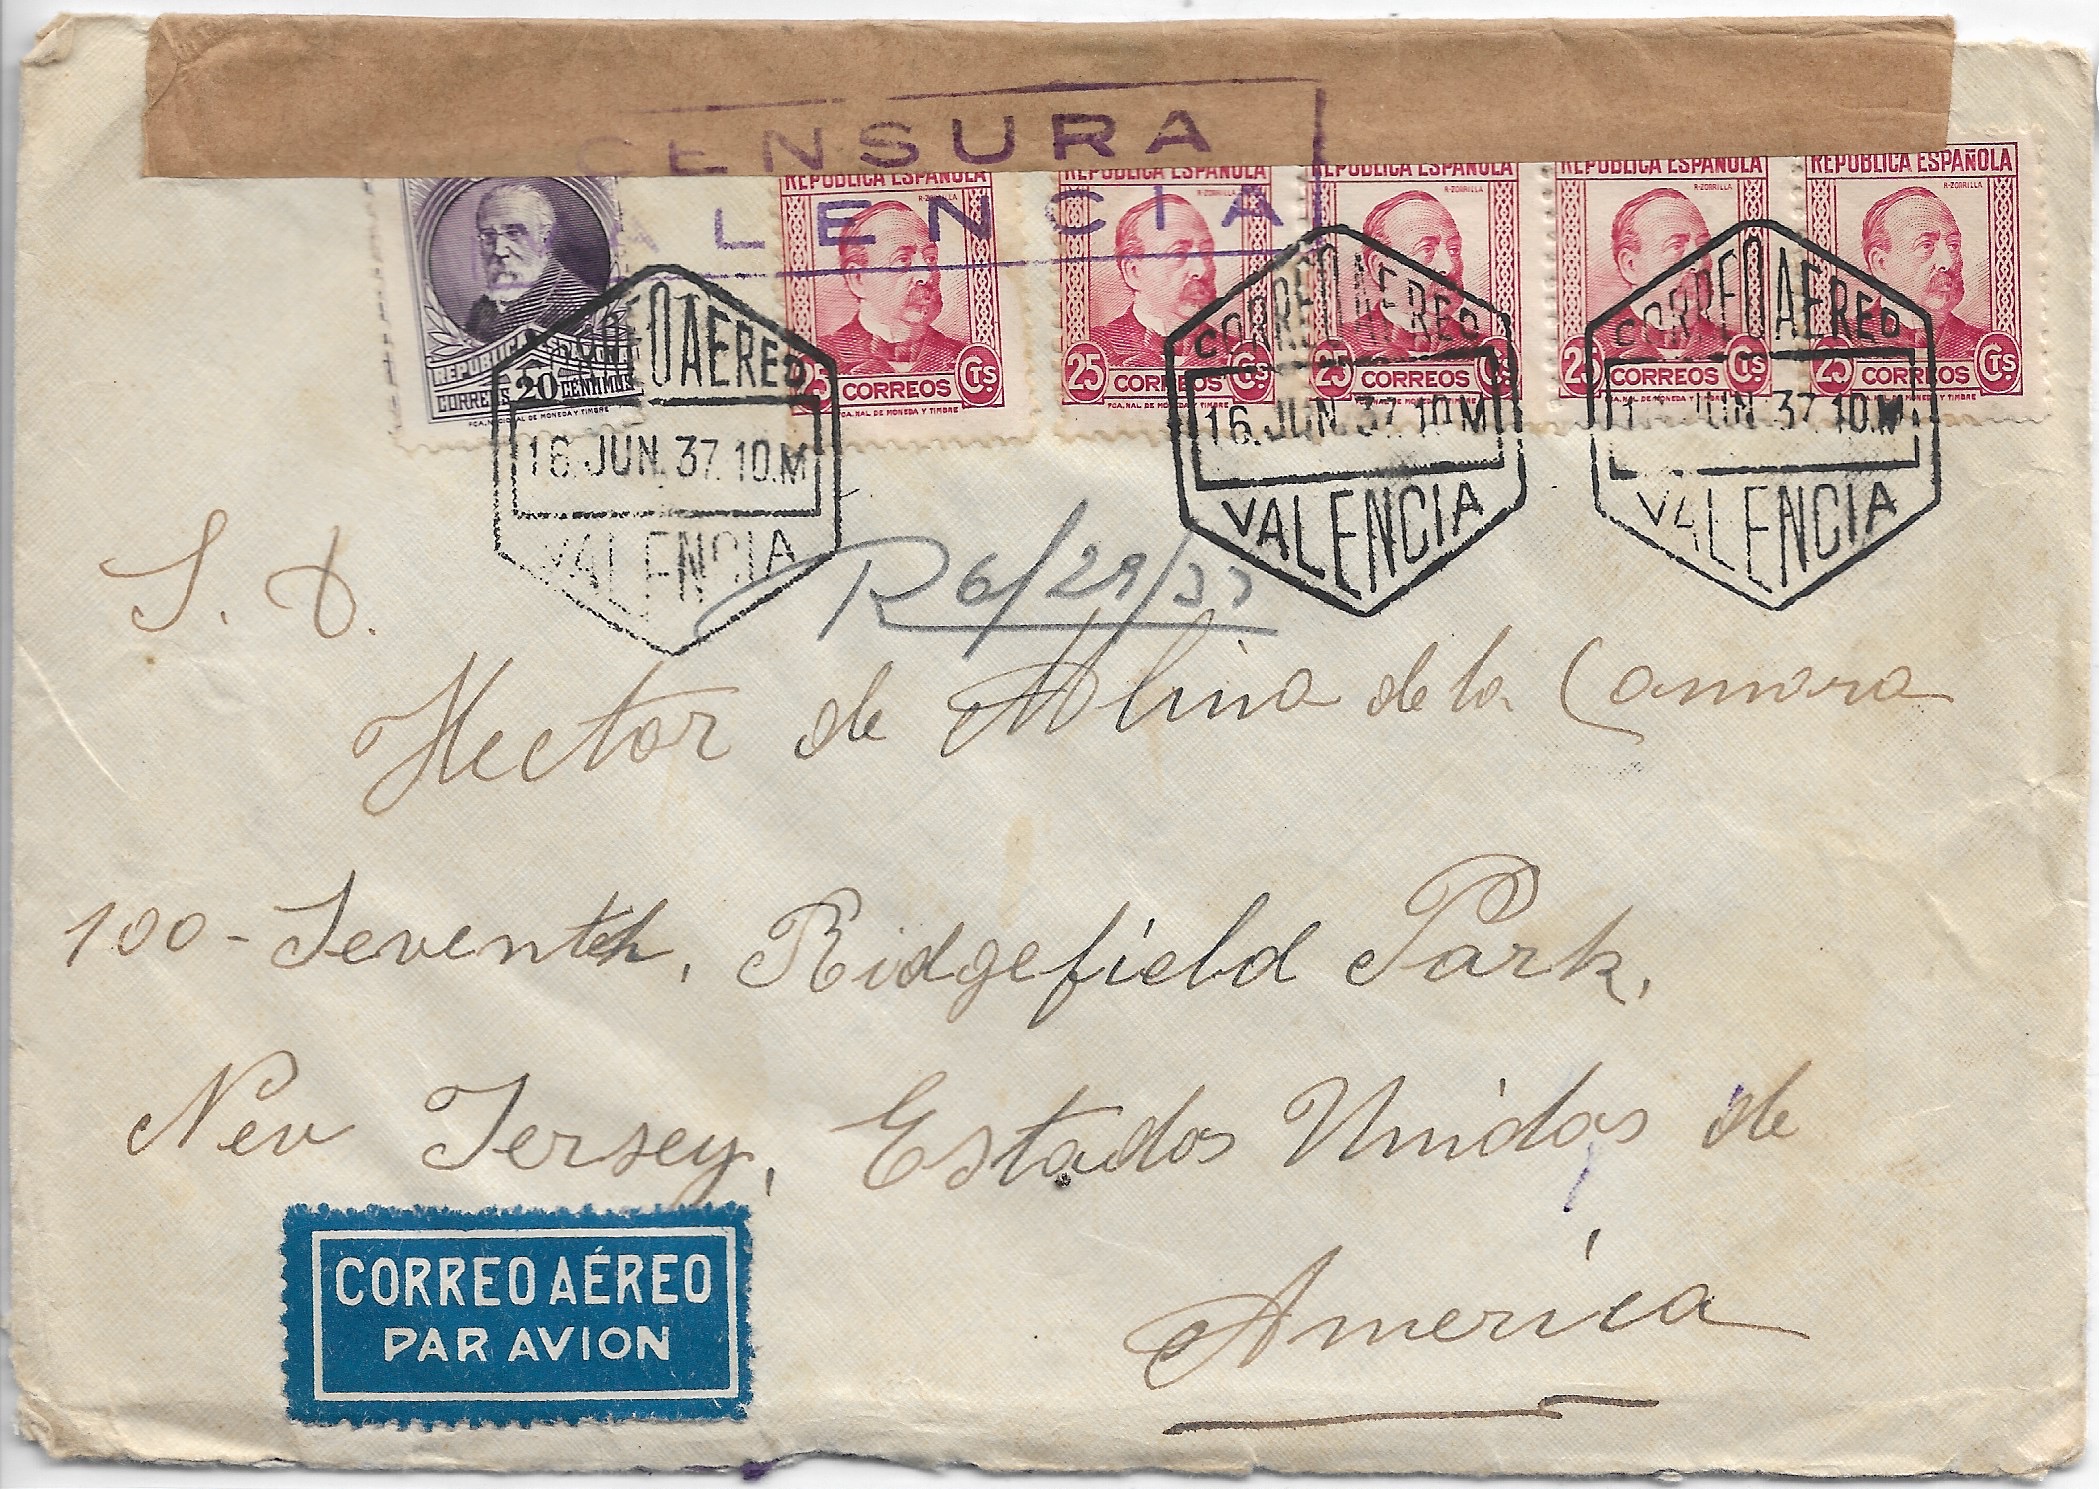 CENSURA
VALENCIA
REPÚBLICA ESPAÑOLA
CORREOS 20 CENTIMOS
REPÚBLICA ESPAÑOLA
R-ZORRILLA
25 CORREOS CTS
FCA. NAL DE MONEDA Y TIMBRE
REPÚBLICA ESPAÑOLA
25 CORREOS CTS.
FCA. NAL DE MONEDA Y TIMBRE
REPÚBLICA ESPAÑOLA
R-ZORRILLA
25 CORREOS CTS
REPÚBLICA ESPAÑOLA
R-ZORRILLA
25 CORREOS CTS
REPÚBLICA ESPAÑOLA
R-ZORRILLA
25 CORREOS CTS.
FCA. NAL DE MONEDA Y TIMBRE
CORREO AEREO
16. JUN. 37. 10.M
VALENCIA
CORREO AEREO
16. JUN. 37. 10.M
VALENCIA
CORREO AEREO
JUN. 37. 10.M
VALENCIA
R 6/29/37
S. D.
Hector de Molina de la Camara
100 - Seventh, Ridgefield Park,
New Jersey, Estados Unidos de
America
CORREO AÉREO
PAR AVION